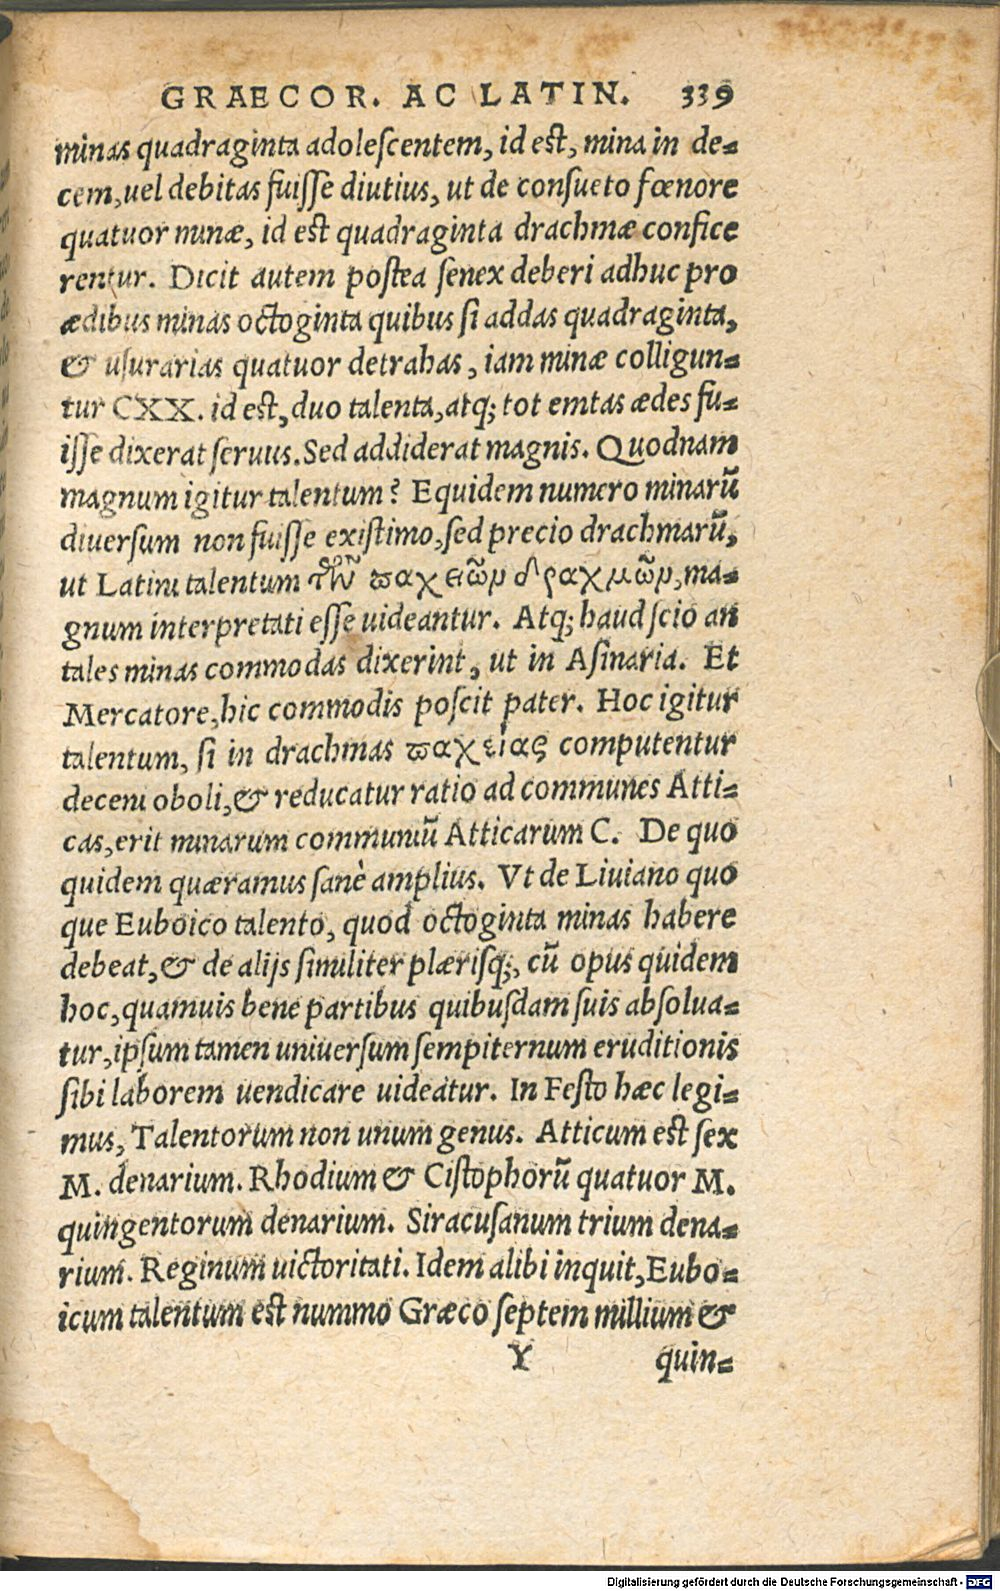 GRAECOR. AC LATIN. 339
minas quadraginta adolescentem, id est, mina in de-
cem, uel debitas fuisse diutius, ut de consueto fœnore
quatuor minæ, id est quadraginta drachmæ confice
rentur. Dicit autem postea senex deberi adhuc pro
ædibus minas octoginta quibus si addas quadraginta,
& usurarias quatuor detrahas, iam minæ colligun-
tur CXX. id est, duo talenta, atq; tot emtas ædes fu-
isse dixerat seruus. Sed addiderat magnis. Quodnam
magnum igitur talentum? Equidem numero minarũ
diuersum non fuisse existimo, sed precio drachmarũ,
ut Latini talentum τῶν παχειῶν δραχμῶν, ma-
gnum interpretati esse uideantur. Atq; haud scio an
tales minas commodas dixerint, ut in Asinaria. Et
Mercatore, hic commodis poscit pater. Hoc igitur
talentum, si in drachmas παχείας computentur
decem oboli, & reducatur ratio ad communes Atti-
cas, erit minarum communiũ Atticarum C. De quo
quidem quæramus sanè amplius. Vt de Liuiano quo
que Euboico talento, quod octoginta minas habere
debeat, & de alijs similiter plærisq;, cũ opus quidem
hoc, quamuis bene partibus quibusdam suis absolua-
tur, ipsum tamen uniuersum sempiternum eruditionis
sibi laborem uendicare uideatur. In Festo hæc legi-
mus, Talentorum non unum genus. Atticum est sex
M. denarium. Rhodium & Cistophorũ quatuor M.
quingentorum denarium. Siracusanum trium dena-
rium. Reginum uictoritati. Idem alibi inquit, Eubo-
icum talentum est nummo Græco septem millium &
Y quin-
Digitalisierung gefördert durch die Deutsche Forschungsgemeinschaft - DFG